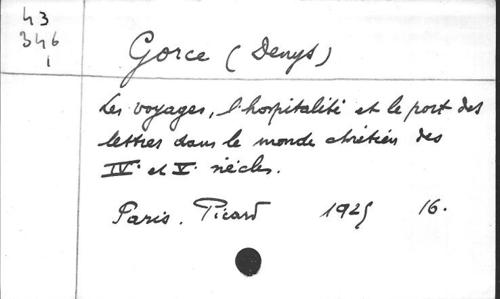 43
346
1
Gorce (Denys)
Les voyages, l'hospitalité et le port des
lettres dans le monde chrétien des
IVe et Ve siècles.
Paris. Picard 1925 16.